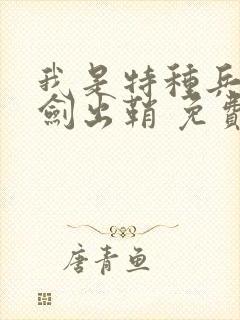 我是特種兵
劍出鞘 免費
唐青魚